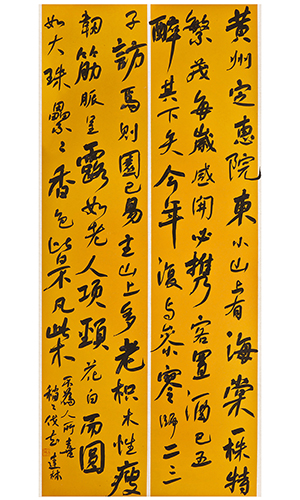 黄州定惠院東小山上有海棠一株特
繁茂每歲盛開必携客置酒已五
醉其下矣今年復与參寥師二三
子訪焉則園已易主山上多老枳木性瘦
韌筋脈呈露如老人項頸花白而圓
如大珠纍々香色皆不凡此木
不為人所喜
稍々伐去